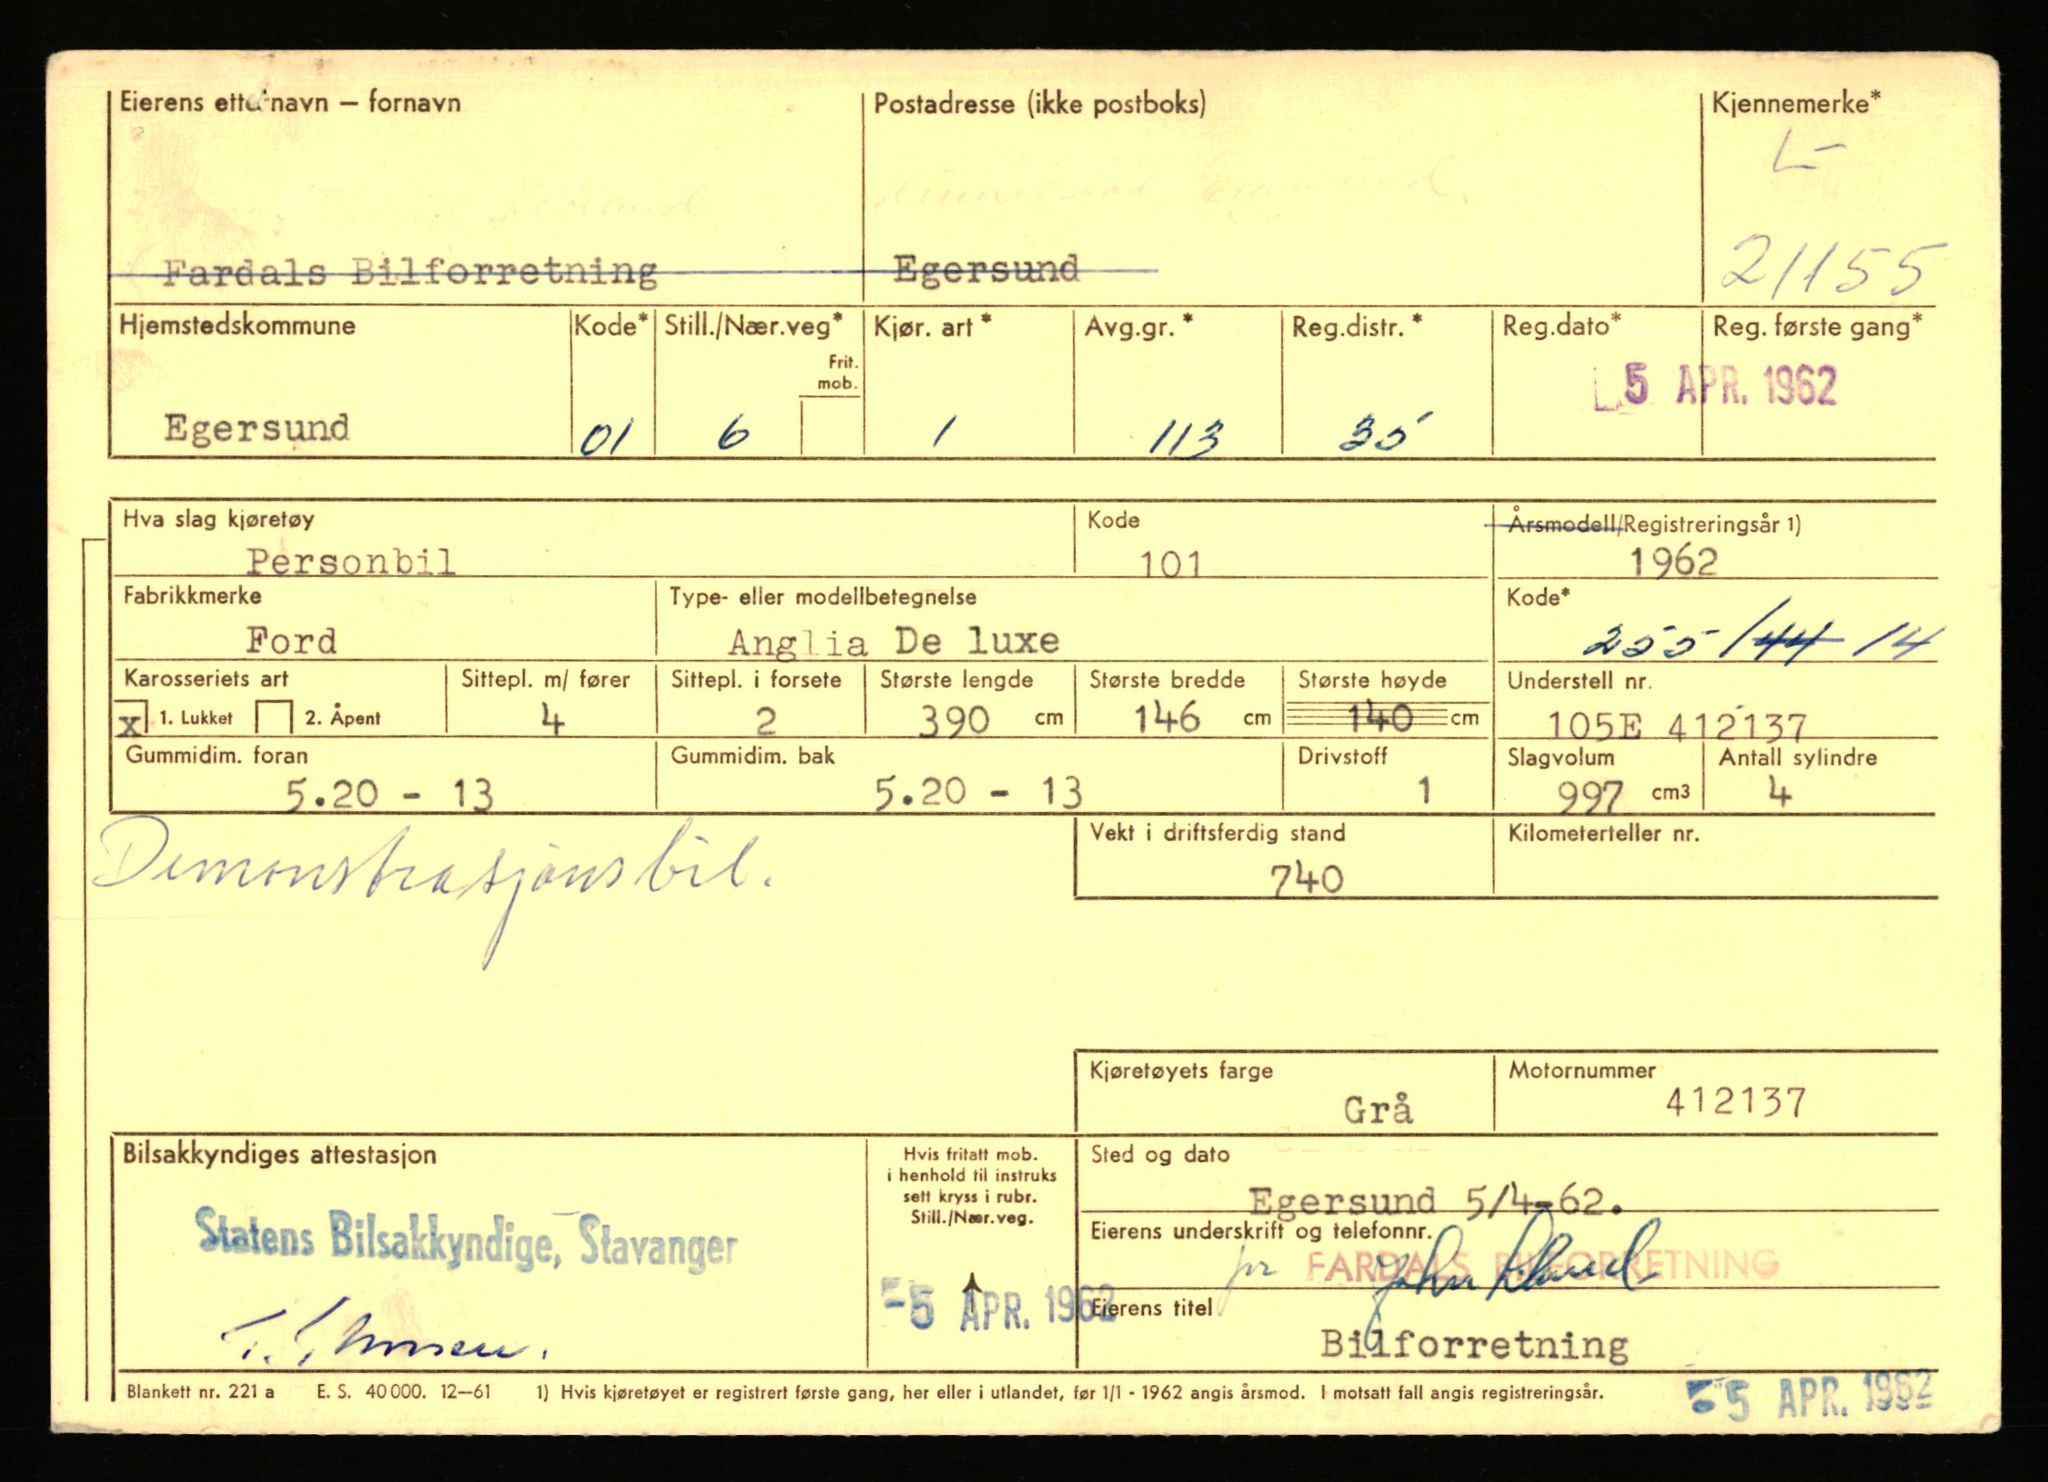 Eierens etternavn — fornavn Postadresse (ikke postboks) Kjennemerke*
L-
Fardals Bilforretning Egersund 21155
Hjemstedskommune Kode* Still./Nær.veg* Kjør. art* Avg.gr.* Reg.distr.* Reg.dato* Reg. første gang*
Frit.
mob.
5 APR. 1962
Egersund 01 6 1 113 35
Hva slag kjøretøy Kode Årsmodell/Registreringsår 1)
Personbil 101 1962
Fabrikkmerke Type- eller modellbetegnelse Kode*
Ford Anglia De luxe 255 /44 14
Karosseriets art Sittepl. m/ fører Sittepl. i forsete Største lengde Største bredde Største høyde Understell nr.
x 1. Lukket 2. Åpent 4 2 390 cm 146 cm 140 cm 105E 412137
Gummidim. foran Gummidim. bak Drivstoff Slagvolum Antall sylindre
5.20 - 13 5.20 - 13 1 997 cm3 4
Vekt i driftsferdig stand Kilometerteller nr.
Demonstrasjonsbil.
740
Kjøretøyets farge Motornummer
Grå 412137
Bilsakkyndiges attestasjon Hvis fritatt mob. Sted og dato
i henhold til instruks
sett kryss i rubr.
Still./Nær.veg.
Egersund 5/4-62.
Statens Bilsakkyndige, Stavanger
Eierens underskrift og telefonnr.
pr FARDALS BILFORRETNING
-5 APR. 1962
Eierens titel
Bilforretning
Blankett nr. 221 a E. S. 40 000. 12—61 1) Hvis kjøretøyet er registrert første gang, her eller i utlandet, før 1/1 - 1962 angis årsmod. I motsatt fall angis registreringsår.
5 APR. 1962